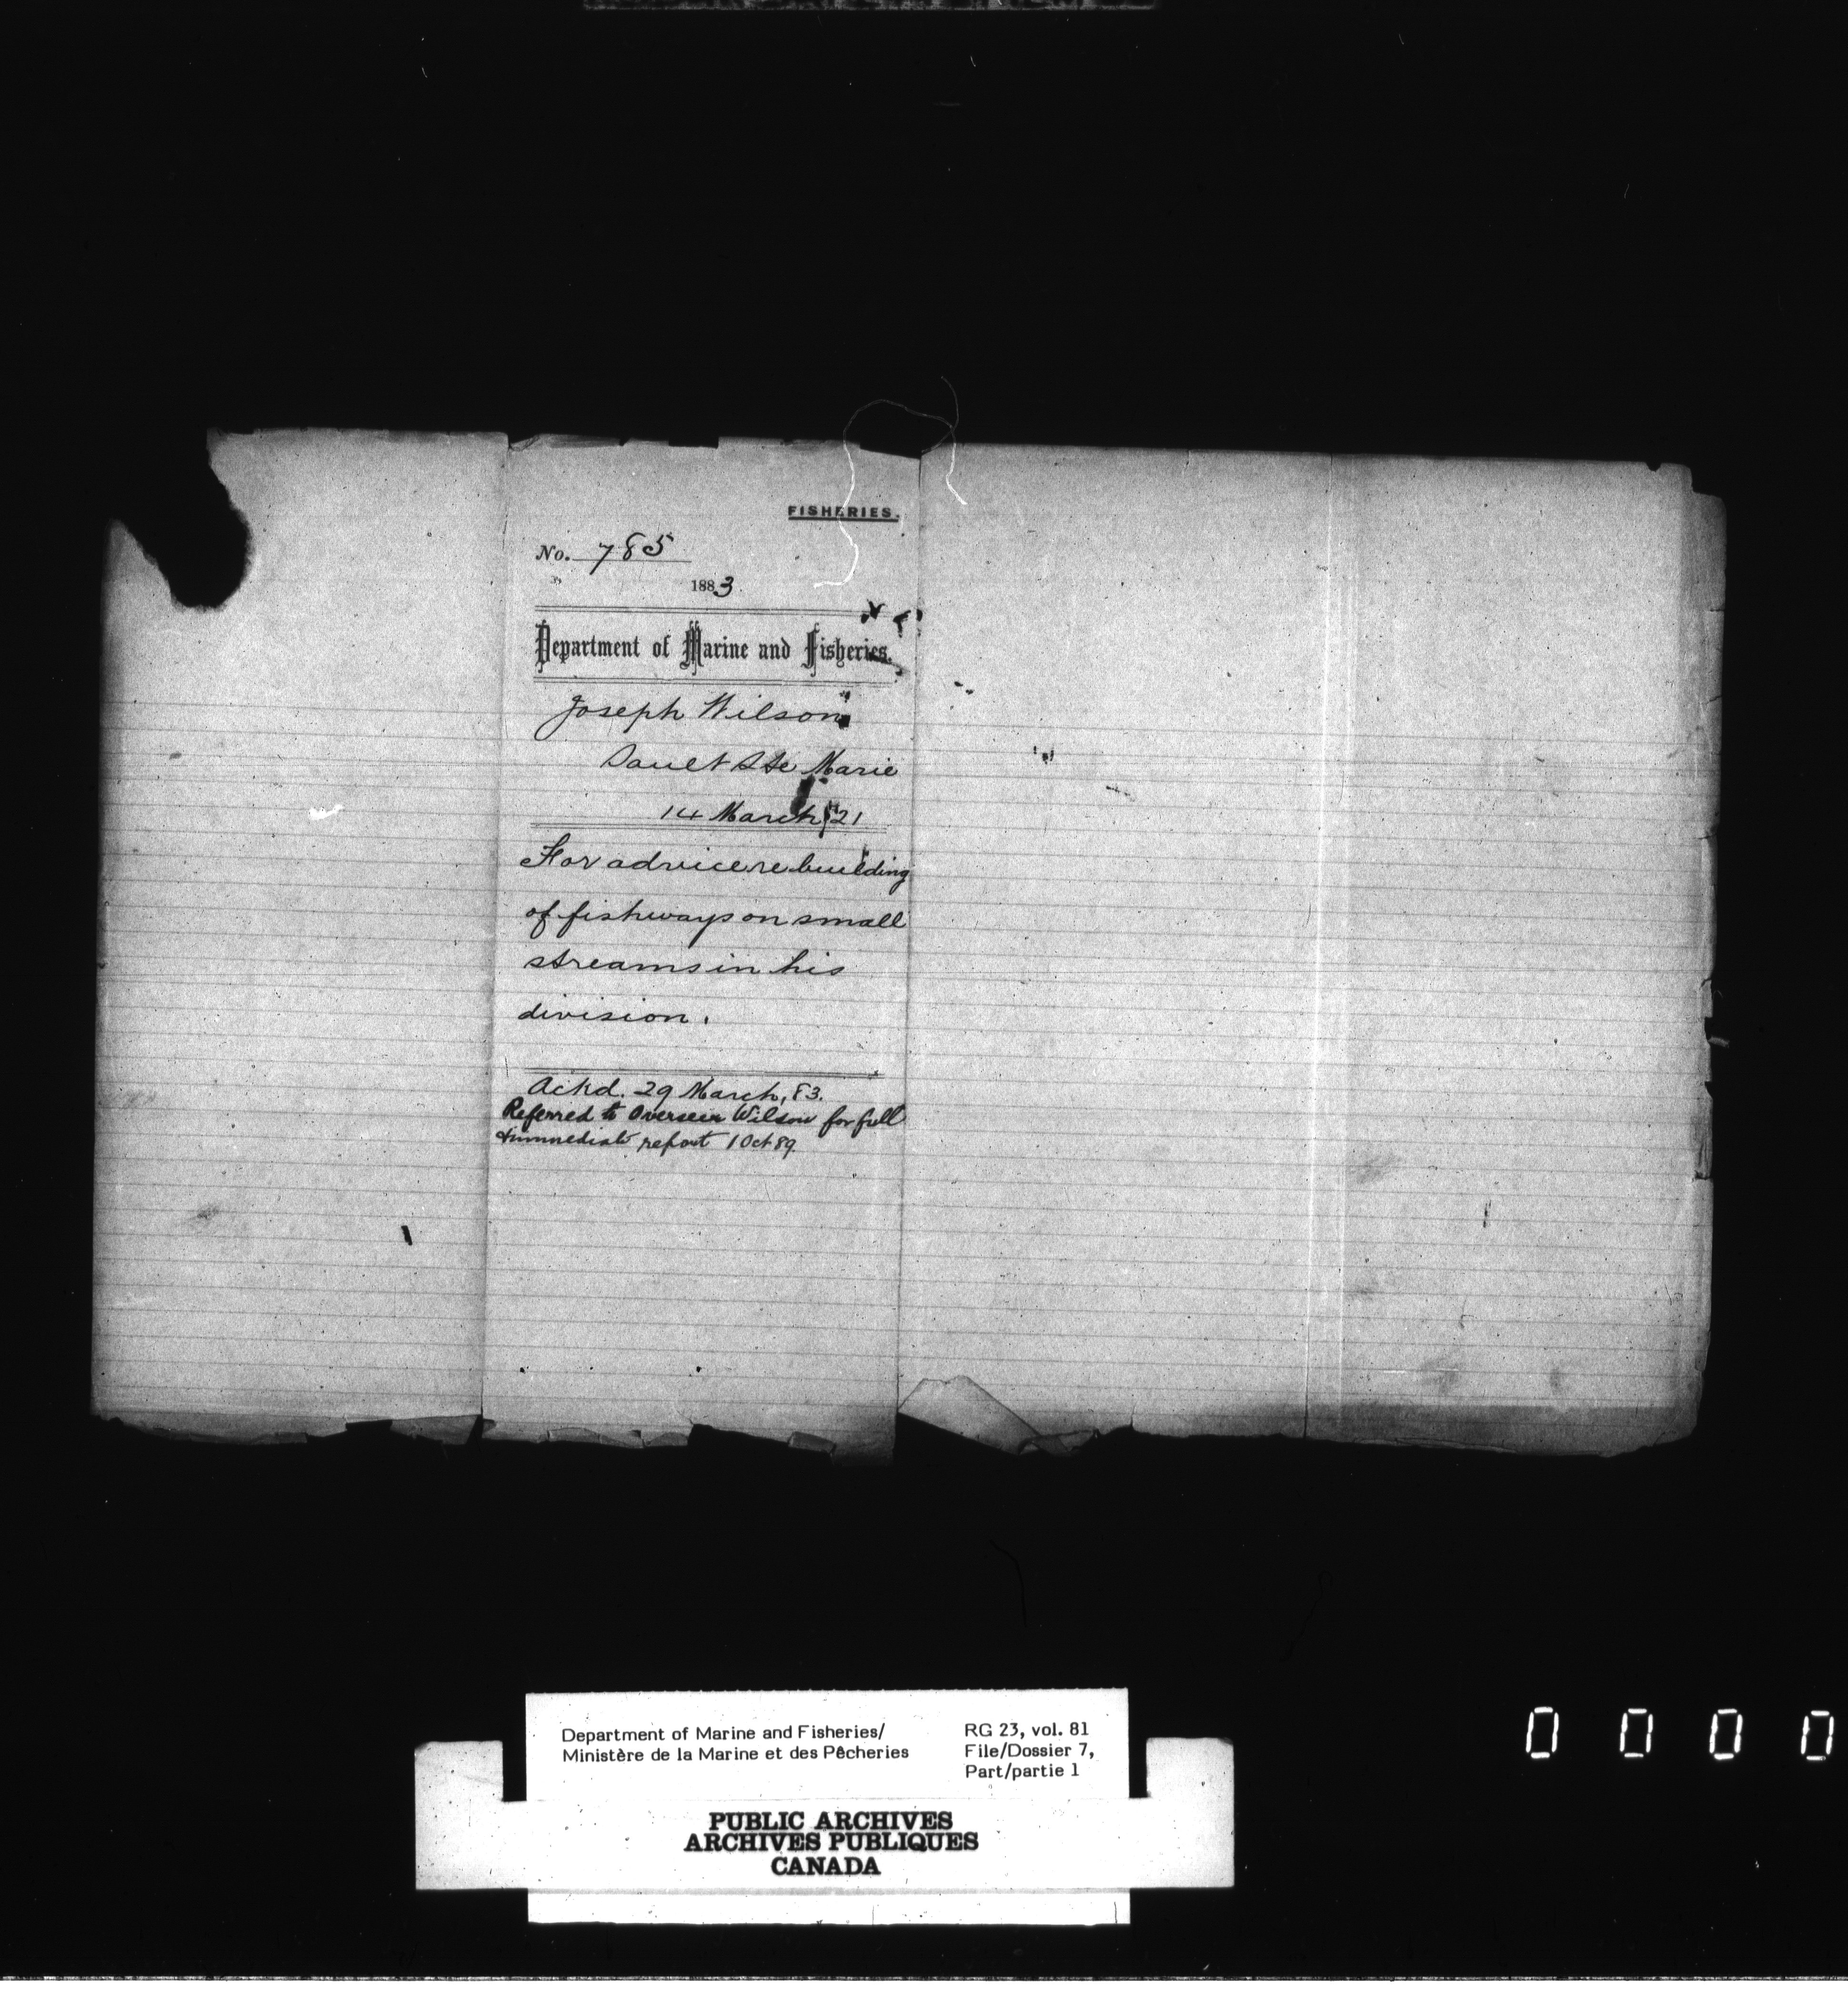 FISHERIES.
No. 785
1883
Department of Marine and Fisheries.
Joseph Wilson
Sault Ste Marie
14 March 21
For advice re building
of fishways on small
streams in his
division.
Ackd. 29 March, 83.
Referred to Overseer Wilson for full
& immediate report 1 Oct 89.
Department of Marine and Fisheries/
Ministère de la Marine et des Pêcheries
RG 23, vol. 81
File/Dossier 7,
Part/partie 1
PUBLIC ARCHIVES
ARCHIVES PUBLIQUES
CANADA
0 0 0 0